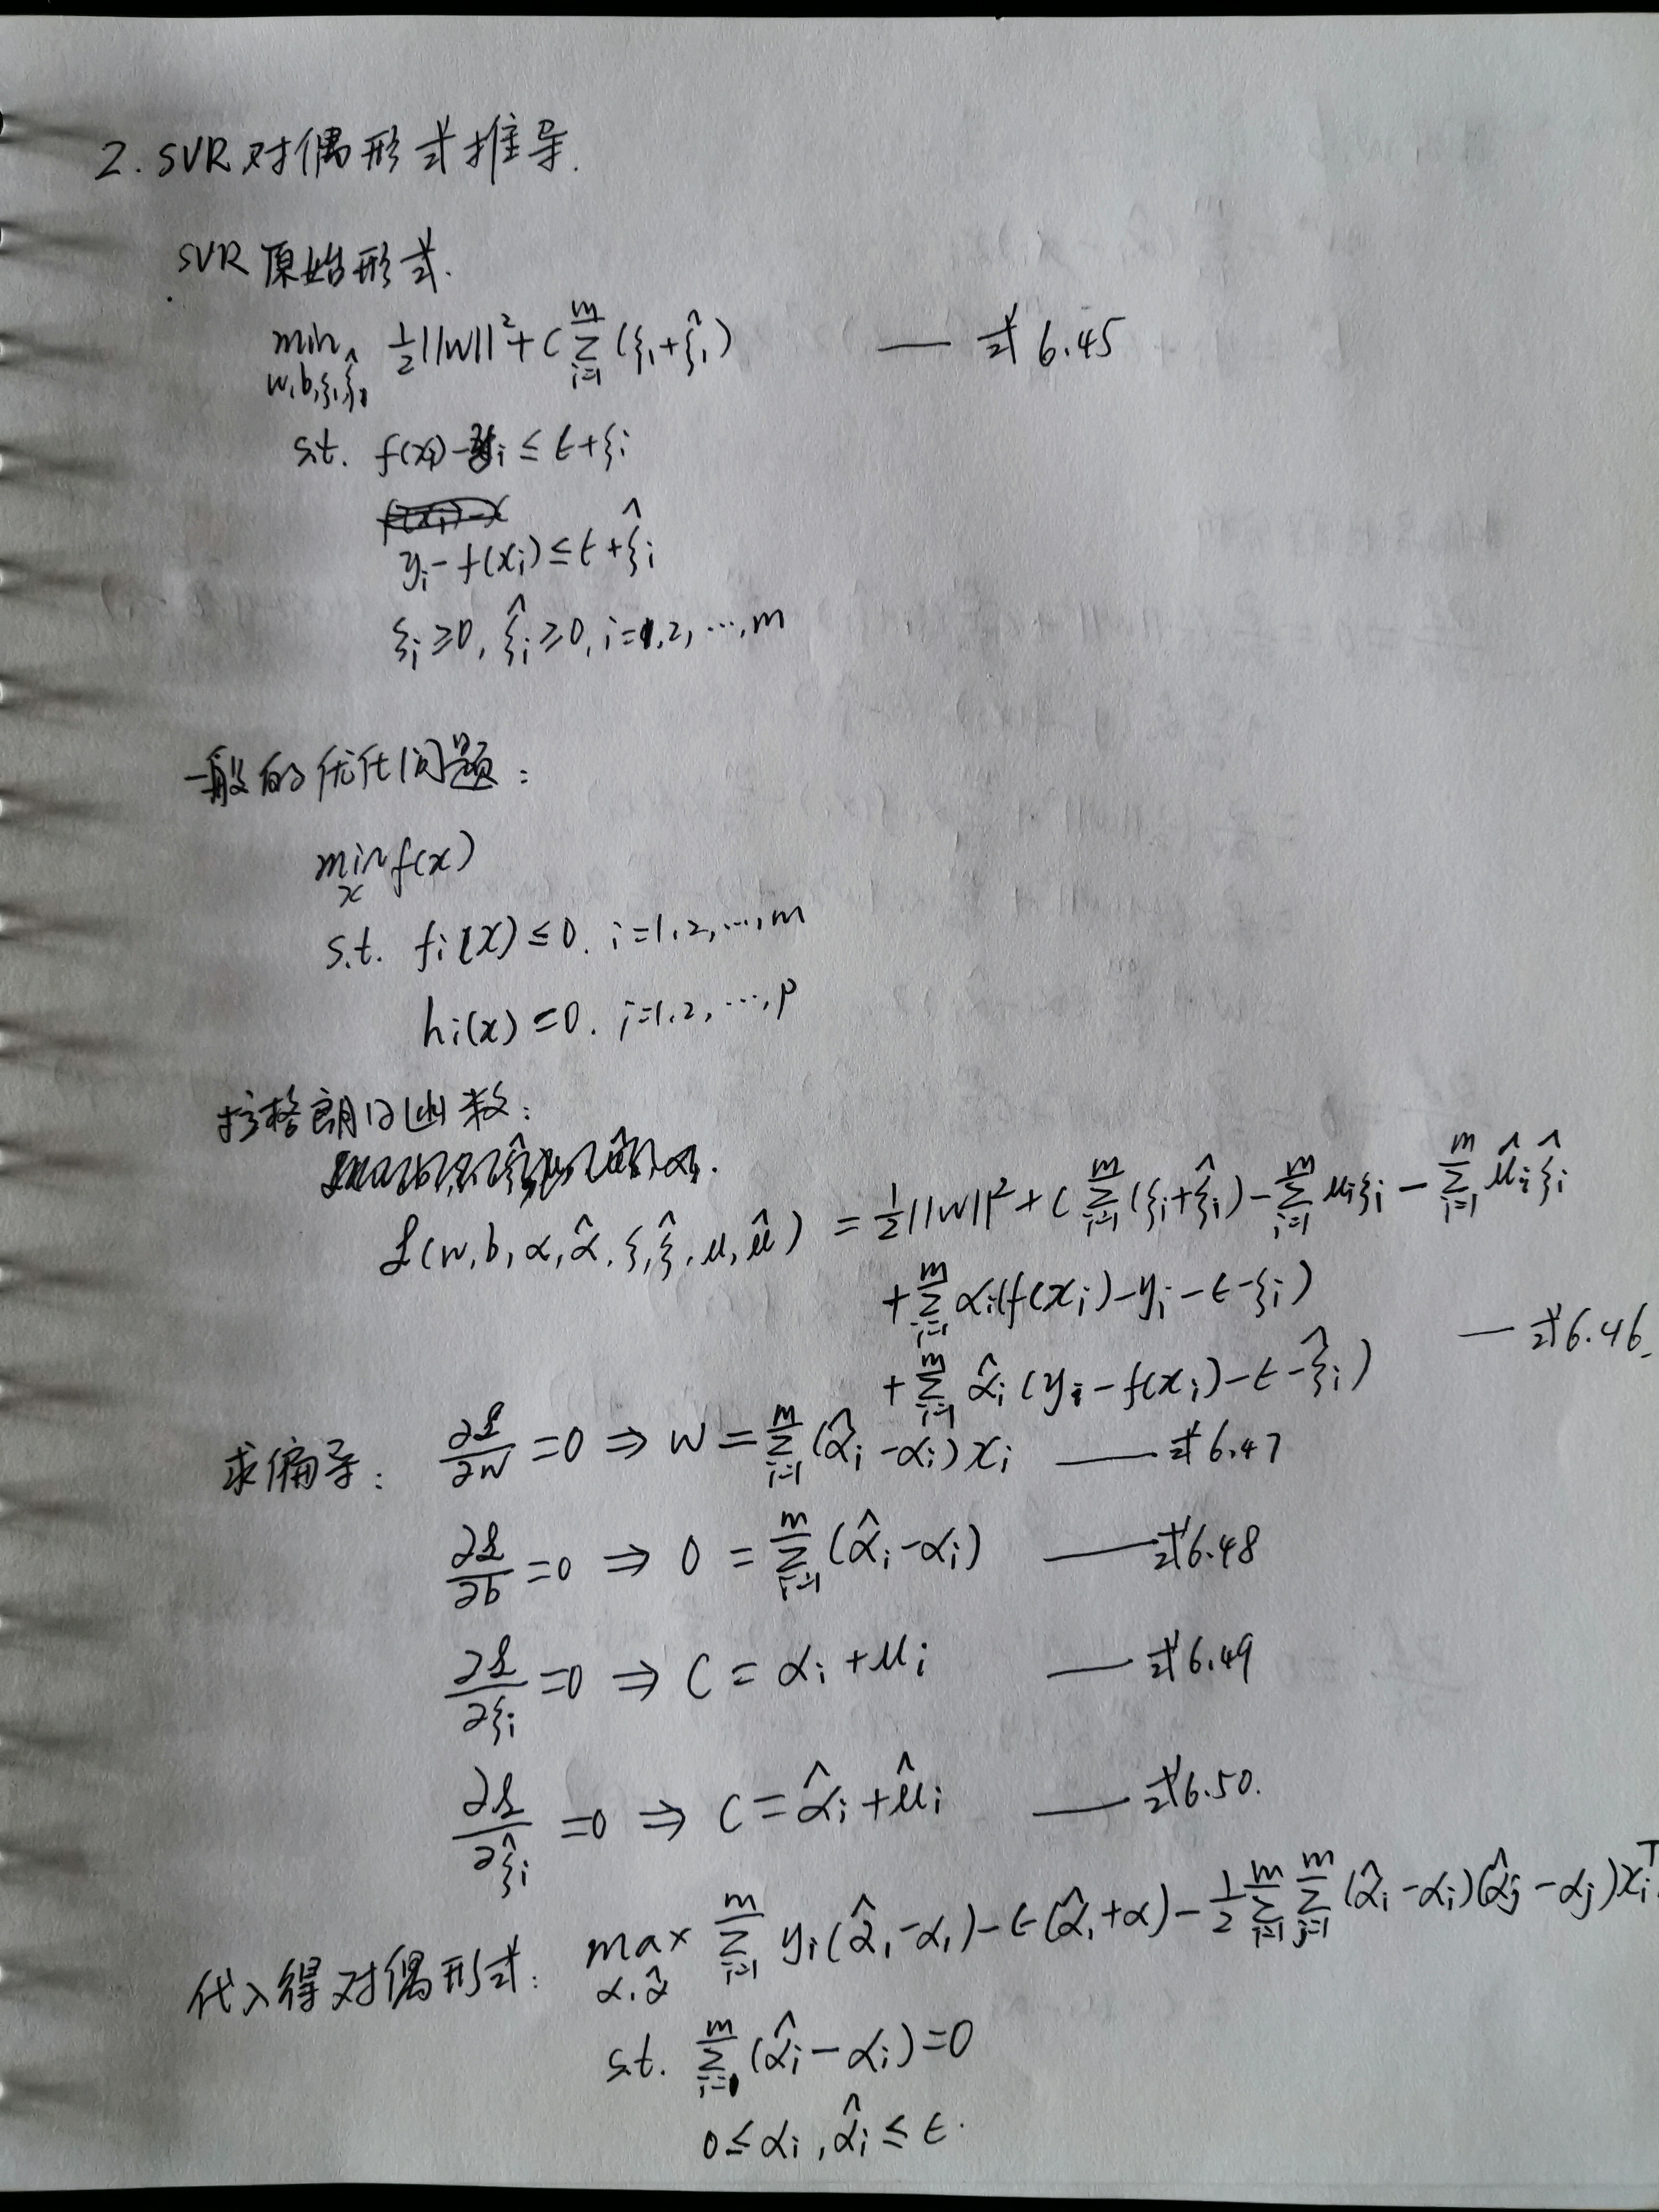 2. SVR对偶形式推导.
SVR原始形式.
min ½||w||² + C∑(ξi+ξ̂i) —— 式6.45
w,b,ξi,ξ̂i i=1 m
s.t. f(xi)-yi ≤ ϵ+ξi
yi-f(xi) ≤ ϵ+ξ̂i
ξi≥0, ξ̂i≥0, i=1,2,…,m
一般的优化问题:
min f(x)
x
s.t. fi(x)≤0. i=1,2,…,m
hi(x)=0. i=1,2,…,p
拉格朗日函数:
L(w,b,α,α̂,ξ,ξ̂,μ,μ̂) = ½||w||² + C∑_{i=1}^{m}(ξi+ξ̂i) - ∑_{i=1}^{m}μiξi - ∑_{i=1}^{m}μ̂iξ̂i
+∑_{i=1}^{m}αi(f(xi)-yi-ϵ-ξi)
+∑_{i=1}^{m}α̂i(yi-f(xi)-ϵ-ξ̂i) —— 式6.46.
求偏导: ∂L/∂w=0 ⇒ w=∑_{i=1}^{m}(α̂i-αi)xi —— 式6.47
∂L/∂b=0 ⇒ 0=∑_{i=1}^{m}(α̂i-αi) —— 式6.48
∂L/∂ξi=0 ⇒ C=αi+μi —— 式6.49
∂L/∂ξ̂i=0 ⇒ C=α̂i+μ̂i —— 式6.50.
代入得对偶形式: max_{α,α̂} ∑_{i=1}^{m} yi(α̂i-αi)-ϵ(α̂i+α)-½∑_{i=1}^{m}∑_{j=1}^{m}(α̂i-αi)(α̂j-αj)xi^T
s.t. ∑_{i=1}^{m}(α̂i-αi)=0
0≤αi,α̂i≤ϵ.